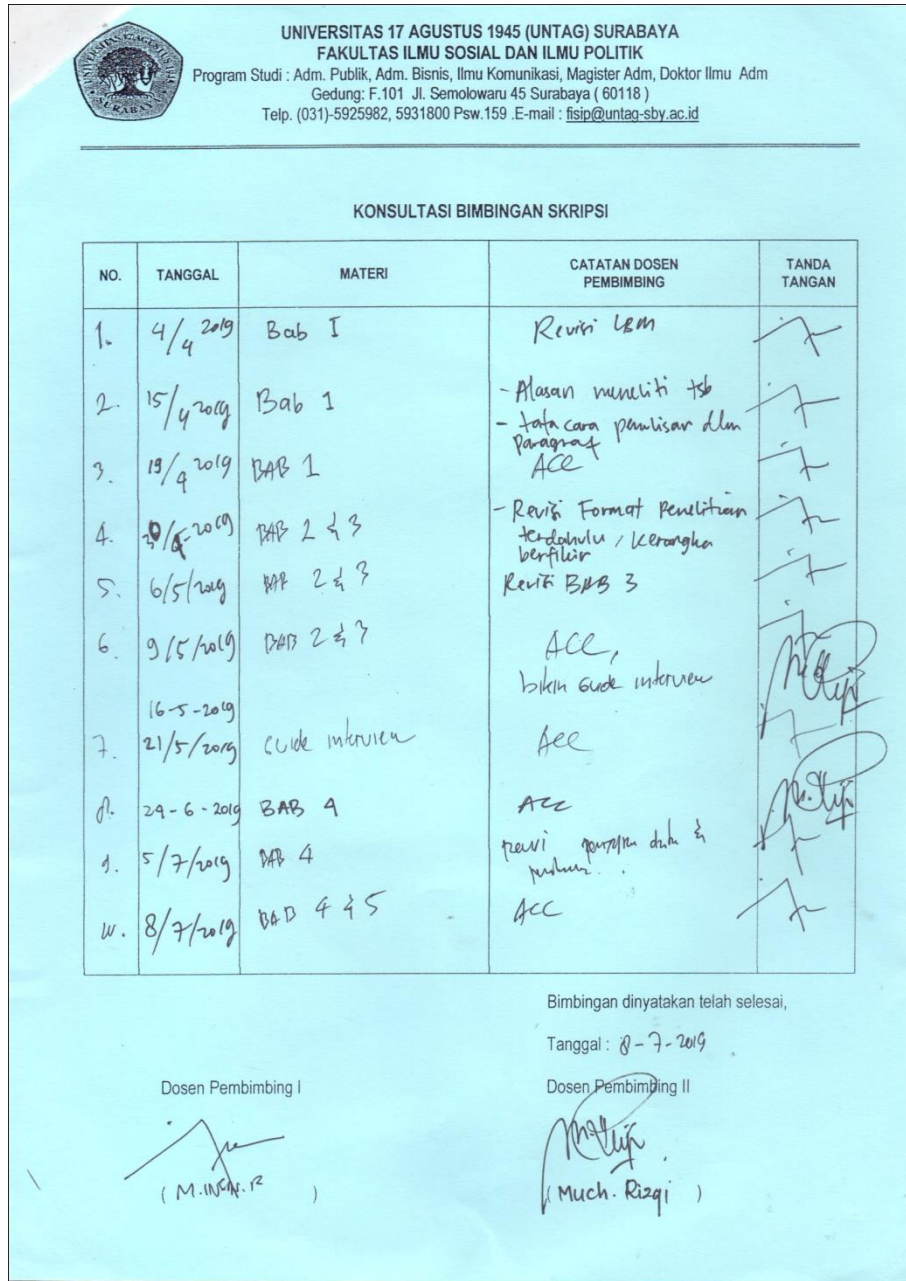 UNIVERSITAS 17 AGUSTUS 1945 (UNTAG) SURABAYA
FAKULTAS ILMU SOSIAL DAN ILMU POLITIK
Program Studi : Adm. Publik, Adm. Bisnis, Ilmu Komunikasi, Magister Adm, Doktor Ilmu Adm
Gedung: F.101 Jl. Semolowaru 45 Surabaya ( 60118 )
Telp. (031)-5925982, 5931800 Psw.159 .E-mail : fisip@untag-sby.ac.id
KONSULTASI BIMBINGAN SKRIPSI
NO. TANGGAL MATERI CATATAN DOSEN PEMBIMBING TANDA TANGAN
1. 4/4 2019 Bab I Revisi LBM
2. 15/4 2019 Bab 1 - Alasan meneliti tsb
- tata cara penulisan dlm
paragraf
3. 19/4 2019 BAB 1 ACC
4. 2019 BAB 2 & 3 - Revisi Format Penelitian
terdahulu / Kerangka
berfikir
5. 6/5/2019 BAB 2 & 3 Revisi BAB 3
6. 9/5/2019 BAB 2 & 3 ACC,
bikin Guide interview
16-5-2019
7. 21/5/2019 Guide interview Acc
8. 24-6-2019 BAB 4 ACC
9. 5/7/2019 BAB 4 data &
10. 8/7/2019 BAB 4 & 5 ACC
Bimbingan dinyatakan telah selesai,
Tanggal : 8-7-2019
Dosen Pembimbing I Dosen Pembimbing II
( M. )
( Much. Rizqi )